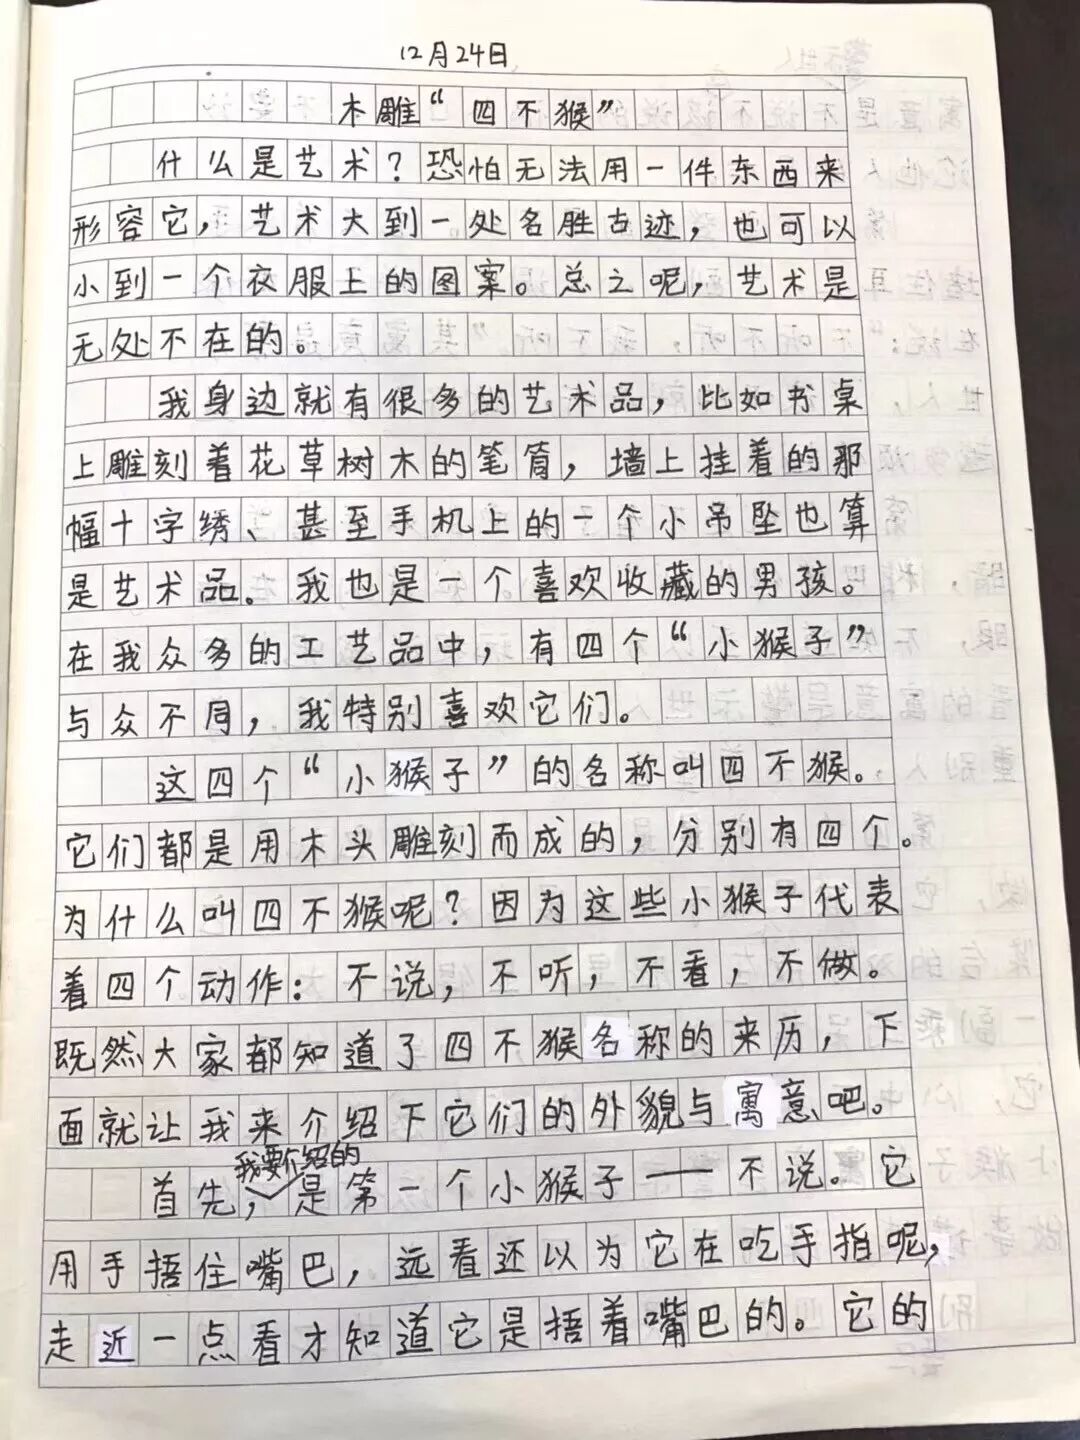 12月24日
木雕“四不猴”
什么是艺术？恐怕无法用一件东西来
形容它，艺术大到一处名胜古迹，也可以
小到一个衣服上的图案。总之呢，艺术是
无处不在的。
我身边就有很多的艺术品，比如书桌
上雕刻着花草树木的笔筒，墙上挂着的那
幅十字绣、甚至手机上的一个小吊坠也算
是艺术品。我也是一个喜欢收藏的男孩。
在我众多的工艺品中，有四个“小猴子”
与众不同，我特别喜欢它们。
这四个“小猴子”的名称叫四不猴。
它们都是用木头雕刻而成的，分别有四个。
为什么叫四不猴呢？因为这些小猴子代表
着四个动作：不说，不听，不看，不做。
既然大家都知道了四不猴名称的来历，下
面就让我来介绍下它们的外貌与寓意吧。
我要介绍的
首先，是第一个小猴子——不说。它
用手捂住嘴巴，远看还以为它在吃手指呢，
走近一点看才知道它是捂着嘴巴的。它的